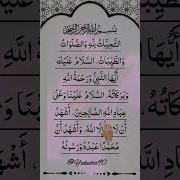 بِسْمِ اللهِ الرَّحْمٰنِ الرَّحِيْمِ
التَّحِيَّاتُ لِلّٰهِ وَالصَّلَوَاتُ
وَالطَّيِّبَاتُ السَّلَامُ عَلَيْكَ
أَيُّهَا النَّبِيُّ وَرَحْمَةُ اللهِ
وَبَرَكَاتُهُ السَّلَامُ عَلَيْنَا وَعَلَى
عِبَادِ اللهِ الصَّالِحِينَ. أَشْهَدُ
أَنْ لَا اللهُ وَأَشْهَدُ أَنَّ
مُحَمَّدًا عَبْدُهُ وَرَسُولُهُ